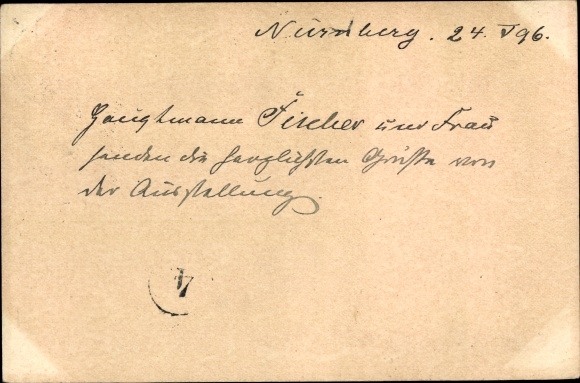 Nürnberg. 24. V 96.
Hauptmann Fischer und Frau
senden die herzlichsten Grüße von
der Ausstellung.
4